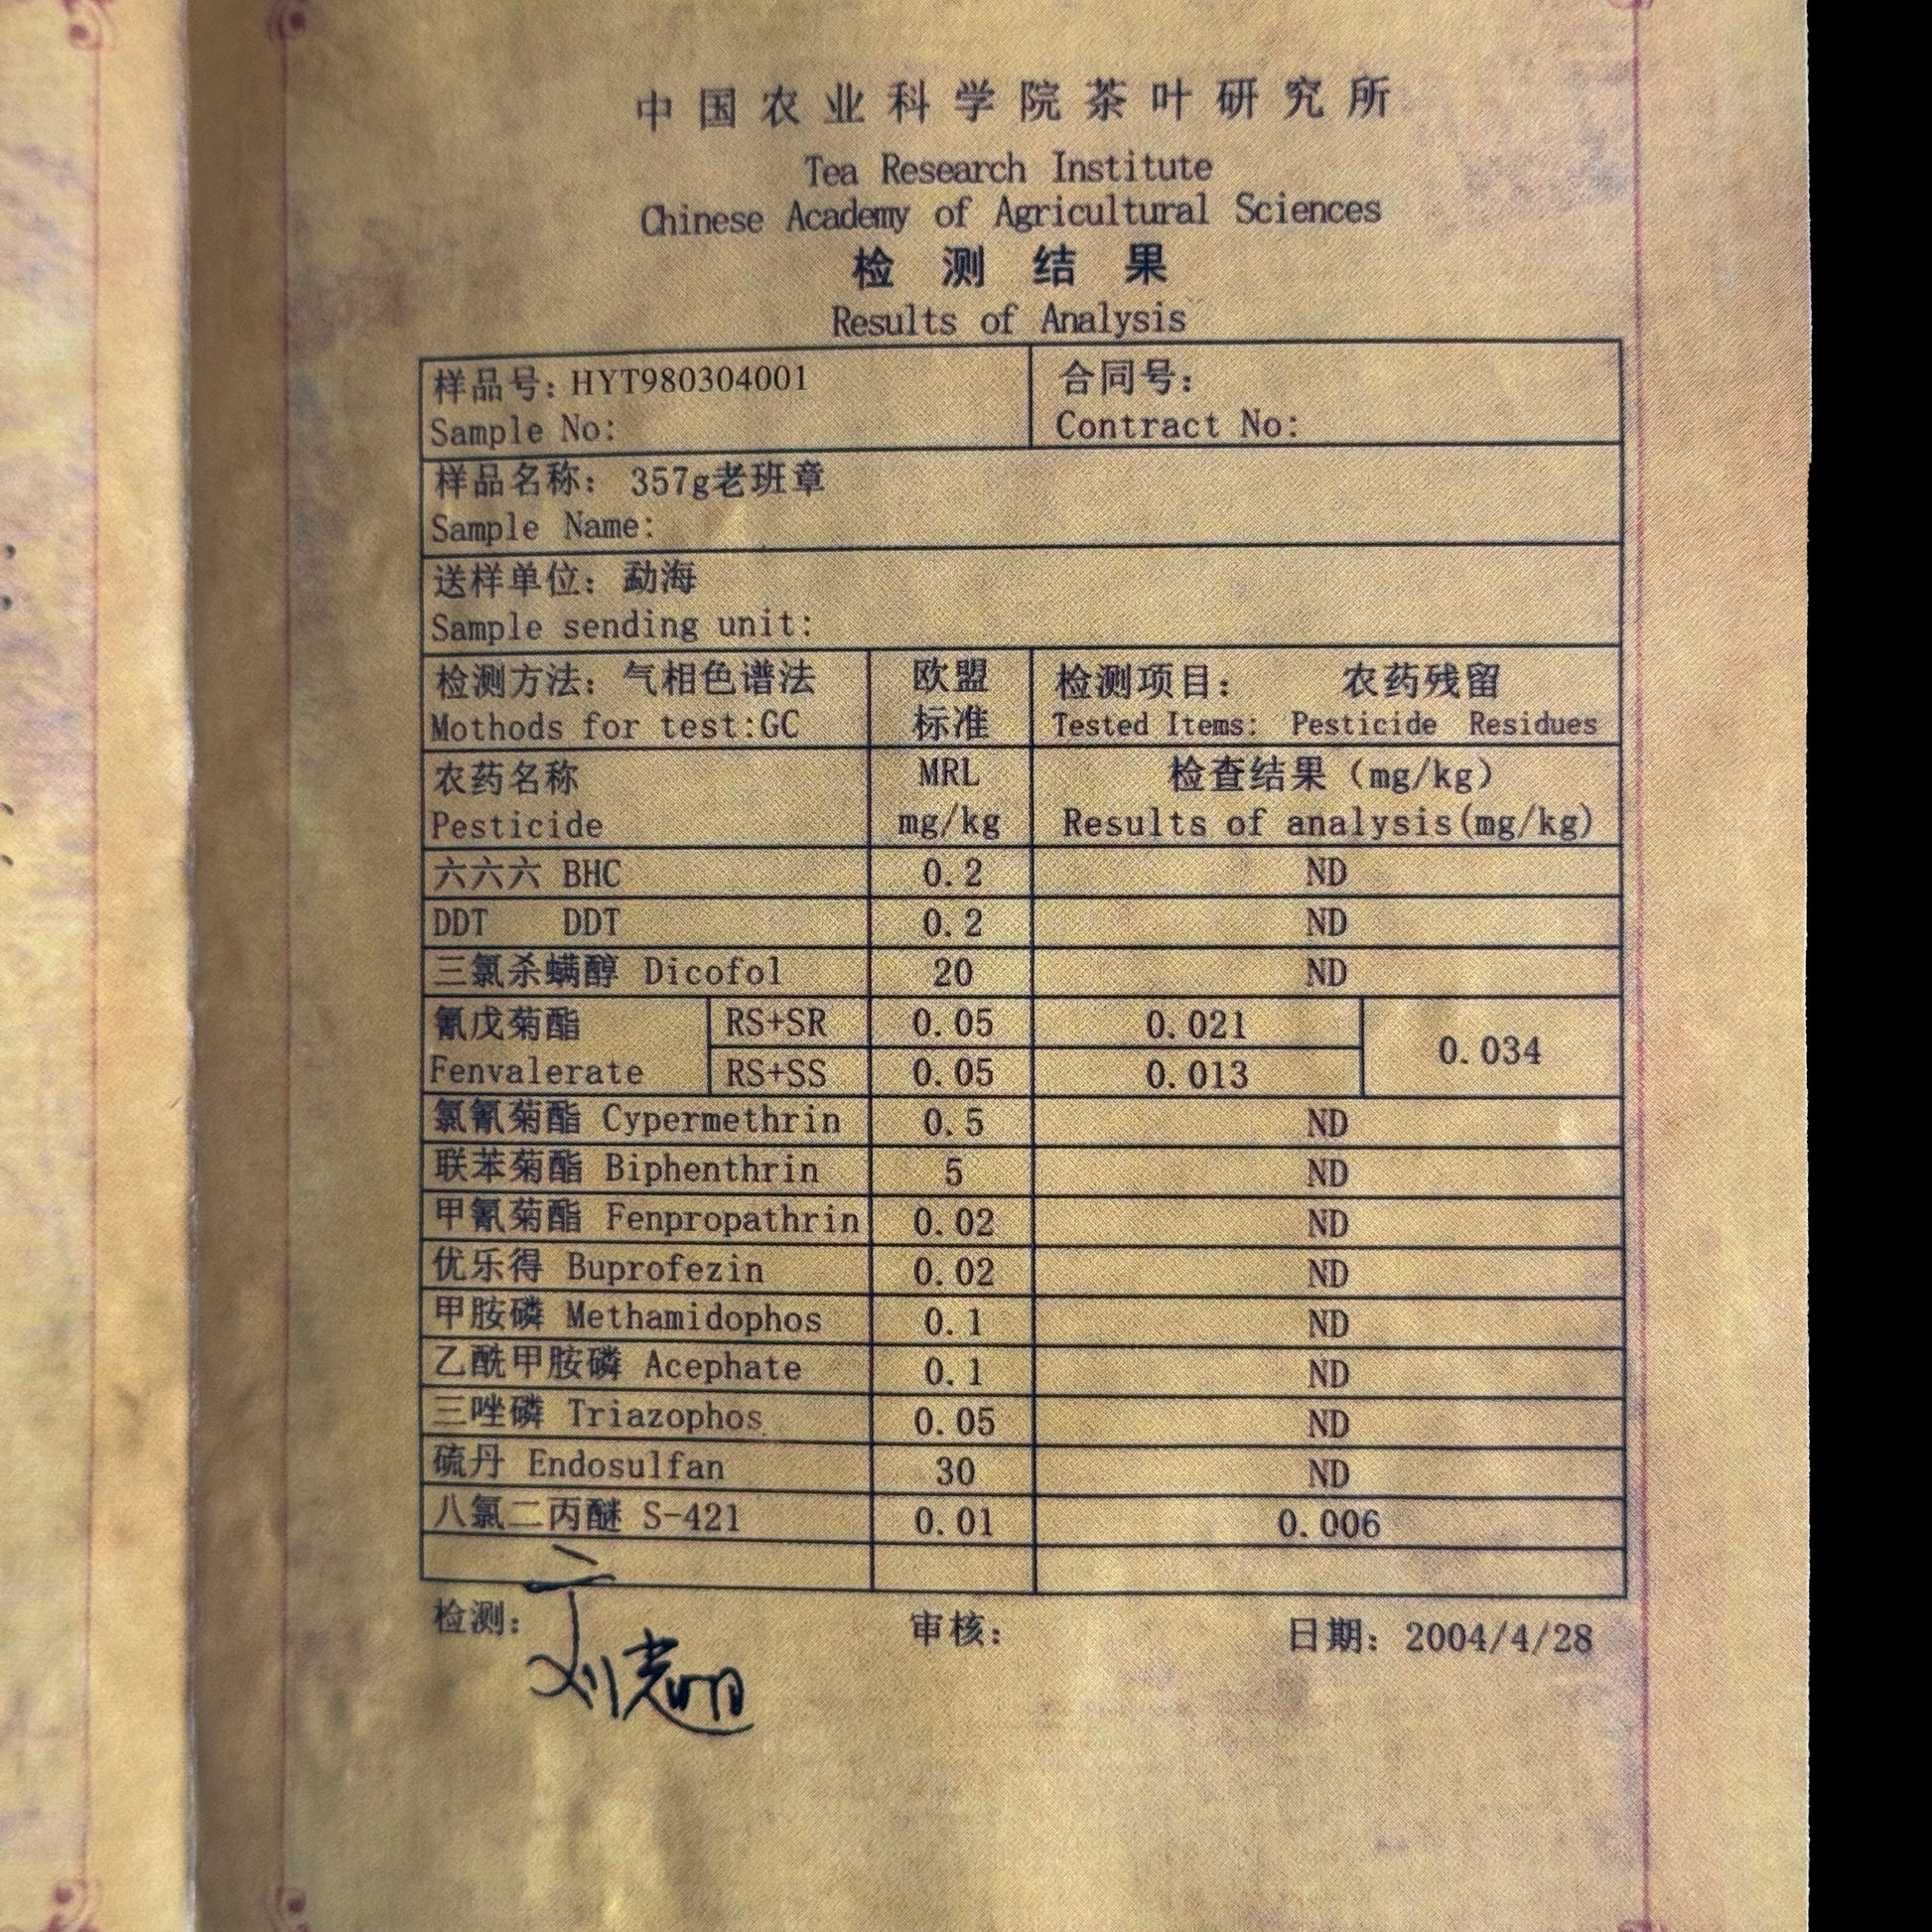 中国农业科学院茶叶研究所
Tea Research Institute
Chinese Academy of Agricultural Sciences
检测结果
Results of Analysis
样品号: HYT980304001 合同号:
Sample No: Contract No:
样品名称: 357g老班章
Sample Name:
送样单位: 勐海
Sample sending unit:
检测方法: 气相色谱法 欧盟 检测项目: 农药残留
Mothods for test:GC 标准 Tested Items: Pesticide Residues
农药名称 MRL 检查结果（mg/kg）
Pesticide mg/kg Results of analysis(mg/kg)
六六六 BHC 0.2 ND
DDT DDT 0.2 ND
三氯杀螨醇 Dicofol 20 ND
氰戊菊酯 RS+SR 0.05 0.021 0.034
Fenvalerate RS+SS 0.05 0.013
氯氰菊酯 Cypermethrin 0.5 ND
联苯菊酯 Biphenthrin 5 ND
甲氰菊酯 Fenpropathrin 0.02 ND
优乐得 Buprofezin 0.02 ND
甲胺磷 Methamidophos 0.1 ND
乙酰甲胺磷 Acephate 0.1 ND
三唑磷 Triazophos 0.05 ND
硫丹 Endosulfan 30 ND
八氯二丙醚 S-421 0.01 0.006
检测: 审核: 日期: 2004/4/28